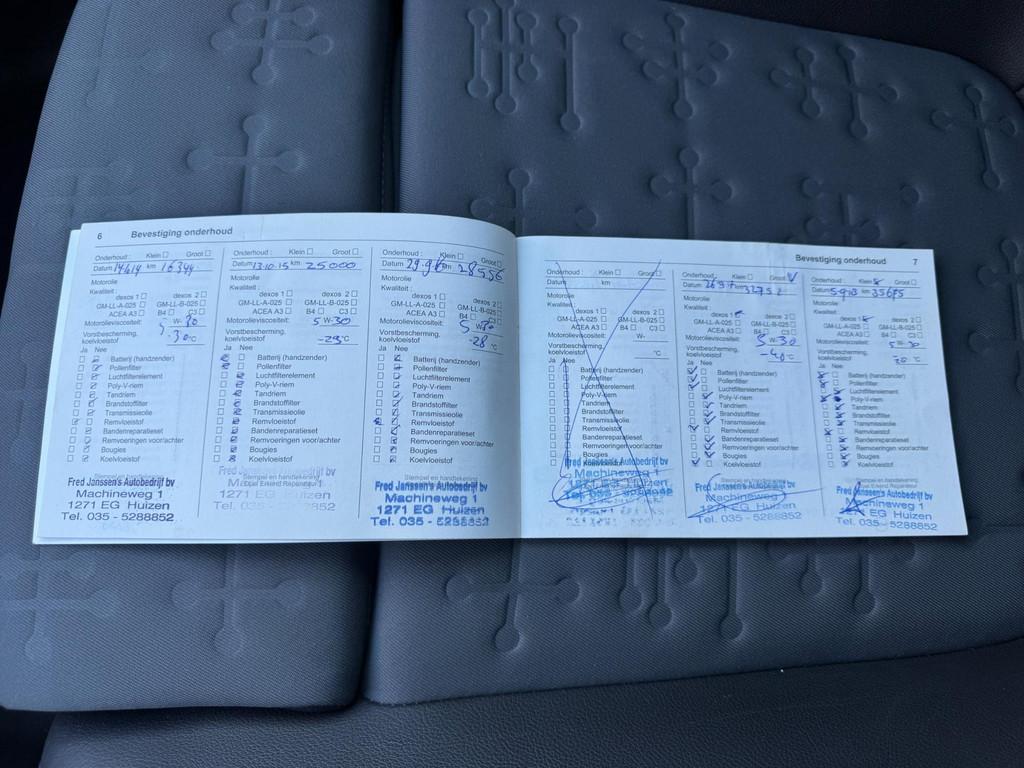 6 Bevestiging onderhoud
Onderhoud : Klein ☐ Groot ☐
Datum 14.4.14 km 16344
Motorolie
Kwaliteit :
dexos 1 ☐ dexos 2 ☐
GM-LL-A-025 ☐ GM-LL-B-025 ☐
ACEA A3 ☐ B4 ☐ C3 ☐
Motorolieviscositeit: 5 W- 30
Vorstbescherming,
koelvloeistof - 30 °C
Ja Nee
Batterij (handzender)
Pollenfilter
Luchtfilterelement
Poly-V-riem
Tandriem
Brandstoffilter
Transmissieolie
Remvloeistof
Bandenreparatieset
Remvoeringen voor/achter
Bougies
Koelvloeistof
Fred Janssen's Autobedrijf bv
Machineweg 1
1271 EG Huizen
Tel. 035 - 5288852
Onderhoud : Klein ☐ Groot ☐
Datum 13-10-15 km 25000
Motorolie
Kwaliteit :
dexos 1 ☐ dexos 2 ☐
GM-LL-A-025 ☐ GM-LL-B-025 ☐
ACEA A3 ☐ B4 ☐ C3 ☐
Motorolieviscositeit: 5 W-30
Vorstbescherming,
koelvloeistof -28°C
Ja Nee
Batterij (handzender)
Pollenfilter
Luchtfilterelement
Poly-V-riem
Tandriem
Brandstoffilter
Transmissieolie
Remvloeistof
Bandenreparatieset
Remvoeringen voor/achter
Bougies
Koelvloeistof
Stempel en handtekening
Opel Erkend Reparateur
Fred Janssen's Autobedrijf bv
Machineweg 1
1271 EG Huizen
Tel. 035 - 5288852
Onderhoud : Klein ☐ Groot ☐
Datum 29.9.16 km 28556
Motorolie
Kwaliteit :
dexos 1 ☐ dexos 2 ☐
GM-LL-A-025 ☐ GM-LL-B-025 ☐
ACEA A3 ☐ B4 ☐ C3 ☐
Motorolieviscositeit: 5 W-30
Vorstbescherming,
koelvloeistof -28 °C
Ja Nee
Batterij (handzender)
Pollenfilter
Luchtfilterelement
Poly-V-riem
Tandriem
Brandstoffilter
Transmissieolie
Remvloeistof
Bandenreparatieset
Remvoeringen voor/achter
Bougies
Koelvloeistof
Fred Janssen's Autobedrijf bv
Machineweg 1
1271 EG Huizen
Tel. 035 - 5288852
Bevestiging onderhoud 7
Onderhoud : Klein ☐ Groot ☐
Datum km
Motorolie
Kwaliteit :
dexos 1 ☐ dexos 2 ☐
GM-LL-A-025 ☐ GM-LL-B-025 ☐
ACEA A3 ☐ B4 ☐ C3 ☐
Motorolieviscositeit: W-
Vorstbescherming,
koelvloeistof °C
Ja Nee
Batterij (handzender)
Pollenfilter
Luchtfilterelement
Poly-V-riem
Tandriem
Brandstoffilter
Transmissieolie
Remvloeistof
Bandenreparatieset
Remvoeringen voor/achter
Bougies
Koelvloeistof
Fred Janssen's Autobedrijf bv
Machineweg 1
Onderhoud : Klein ☐ Groot ☑
Datum km
Motorolie
Kwaliteit :
dexos 1 dexos 2 ☐
GM-LL-A-025 ☐ GM-LL-B-025 ☐
ACEA A3 ☐ B4 ☐ C3 ☐
Motorolieviscositeit: 5 W-30
Vorstbescherming,
koelvloeistof -40°C
Ja Nee
Batterij (handzender)
Pollenfilter
Luchtfilterelement
Poly-V-riem
Tandriem
Brandstoffilter
Transmissieolie
Remvloeistof
Bandenreparatieset
Remvoeringen voor/achter
Bougies
Koelvloeistof
Fred Janssen's Autobedrijf bv
Machineweg 1
1271 EG Huizen
Tel. 035 - 5288852
Onderhoud : Klein Groot ☐
Datum km 35675
Motorolie
Kwaliteit :
dexos 1 dexos 2 ☐
GM-LL-A-025 ☐ GM-LL-B-025 ☐
ACEA A3 ☐ B4 ☐ C3 ☐
Motorolieviscositeit: 5 W-30
Vorstbescherming,
koelvloeistof °C
Ja Nee
Batterij (handzender)
Pollenfilter
Luchtfilterelement
Poly-V-riem
Tandriem
Brandstoffilter
Transmissieolie
Remvloeistof
Bandenreparatieset
Remvoeringen voor/achter
Bougies
Koelvloeistof
Stempel en handtekening
Fred Janssen's Autobedrijf bv
Machineweg 1
1271 EG Huizen
Tel. 035 - 5288852